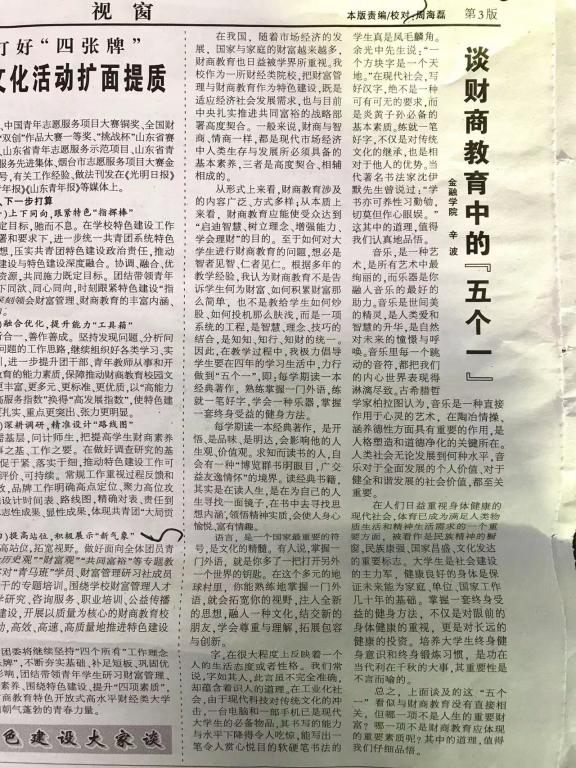 视 窗
本版责编/校对 周海磊 第3版
打好“四张牌”
文化活动扩面提质
、中国青年志愿服务项目大赛铜奖、全国财
“双创”作品大赛一等奖、“挑战杯”山东省赛
、山东省青年志愿服务示范项目、山东省青
服务先进集体、烟台市志愿服务项目大赛金
号，有关工作经验、做法刊发在《光明日报》
年报》《山东青年报》等媒体上。
、下一步打算
)上下同向，跟紧特色“指挥棒”
定目标，驰而不息。在学校特色建设工作
署和要求下，进一步统一共青团系统特色
想，压实共青团特色建设政治责任，推动
建设与特色建设深度融合。协调、融合、优
资源，共同施力既定目标。团结带领青年
下同欲、同心同向，时刻跟紧特色建设“指
深刻领会财富管理、财商教育的丰富内涵、
)融合优化，提升能力“工具箱”
行合一，善作善成。坚持发现问题、分析问
问题的工作思路，继续组织好各类学习、实
训，进一步提升团干部、青年教师从事和开
教育的能力素质，保障推动财商教育校园文
更丰富、更多元、更标准、更优质，以“高能力
“高服务指数”换得“高发展指数”，使特色建
更扎实、重点更突出、张力更明显。
)深耕调研，精准设计“路线图”
基层，问计师生，把提高学生财商素养
事之基、工作之要。在做好调查研究的基
促于紧、落实于细，推动特色建设工作可
评价、可持续。常规工作重视过程反馈和
效，品牌工作明确高点定位、聚力高位攻
设计时间表、路线图，精准对表、责任到
志性成果、显性成果，体现共青团“大局贡
)提高站位，积极展示“新气象”
高站位，拓宽视野。做好面向全体团员青
历史观”“财富观”“共同富裕”等专题教
对“青马班”学员、财富管理研习社成员
干的专题培训。围绕学校财富管理人才
研究、咨询服务、职业培训、公益传播
建设，开展以质量为核心的财商教育校
动，高效、高速、高质量地推进特色建设
团委将继续坚持“四个所有”工作理念
牌”，不断夯实基础、补足短板、巩固优
影响，团结带领青年学生研习财富管理、
素养、围绕特色建设、提升“四项素质”，
商教育特色开放式高水平财经类大学
朝气蓬勃的青春力量。
色建设大家谈
谈财商教育中的『五个一』
金融学院 辛波
在我国，随着市场经济的发
展，国家与家庭的财富越来越多，
财商教育也日益被学界所重视。我
校作为一所财经类院校，把财富管
理与财商教育作为特色建设，既是
适应经济社会发展需求，也与目前
中央扎实推进共同富裕的战略部
署高度契合。一般来说，财商与智
商、情商一样，都是现代市场经济
中人类生存与发展所必须具备的
基本素养，三者是高度契合、相辅
相成的。
从形式上来看，财商教育涉及
的内容广泛、方式多样；从本质上
来看，财商教育应能使受众达到
“启迪智慧、树立理念、增强能力、
学会理财”的目的。至于如何对大
学生进行财商教育的问题，想必是
智者见智、仁者见仁。根据多年的
教学经验，我认为财商教育不是告
诉学生何为财富、如何积累财富那
么简单，也不是教给学生如何炒
股、如何投机那么肤浅，而是一项
系统的工程，是智慧、理念、技巧的
结合，是知如、知行、知财的统一。
因此，在教学过程中，我极力倡导
学生要在四年的学习生活中，力行
做到“五个一”，即：每学期读一本
经典著作，熟练掌握一门外语，练
就一笔好字，学会一种乐器，掌握
一套终身受益的健身方法。
每学期读一本经典著作，是开
悟、是品味、是明达，会影响他的人
生观、价值观。求知而读书的人，自
会有一种“博览群书明眼目，广交
益友逸情怀”的境界。读经典书籍，
其实是在读人生，是在为自己的人
生寻找一面镜子，在书中去寻找思
想内涵、领悟精神实质，会使人身心
愉悦、富有情趣。
语言，是一个国家最重要的符
号，是文化的精髓。有人说，掌握一
门外语，就是你多了一把打开另外
一个世界的钥匙。在这个多元的地
球村里，你能熟练地掌握一门外
语，就会拓宽你的视野，注入全新
的思想，融入一种文化，结交新的
朋友，学会尊重与理解，拓展包容
与创新。
字，在很大程度上反映着一个
人的生活态度或者性格。我们常
说，字如其人，此言虽不完全准确，
却蕴含着识人的道理，在工业化社
会，由于现代科技对传统文化的冲
击，一台电脑和一部手机已是现代
大学生的必备物品，其书写的能力
与水平下降得令人吃惊，能写出一
笔令人赏心悦目的软硬笔书法的
学生真是凤毛麟角。
余光中先生说：“一
个方块字是一个天
地。”在现代社会，写
好汉字，绝不是一种
可有可无的要求，而
是炎黄子孙必备的
基本素质。练就一笔
好字，不仅是对传统
文化的继承，也是相
对于他人的优势。当
代著名书法家沈伊
默先生曾说过：“学
书亦可养性习勤劬，
切莫但作心眼娱。”
这其中的道理，值得
我们认真地品悟。
音乐，是一种艺
术，是所有艺术中最
绚丽的，而乐器是你
融入音乐的最好的
助力。音乐是世间美
的精灵，是人类爱和
智慧的升华，是自然
对未来的憧憬与呼
唤。音乐里每一个跳
动的音符，都把我们
的内心世界表现得
淋漓尽致。古希腊哲
学家柏拉图认为，音乐是一种直接
作用于心灵的艺术，在陶冶情操、
涵养德性方面具有重要的作用，是
人格塑造和道德净化的关键所在。
人类社会无论发展到何种水平，音
乐对于全面发展的个人价值、对于
健全和谐发展的社会价值，都至关
重要。
在人们日益重视身体健康的
现代社会，体育已成为满足人类物
质生活和精神生活需求的一个重
要方面，被看作是民族精神的橱
窗、民族康强、国家昌盛、文化发达
的重要标志。大学生是社会建设
的主力军，健康良好的身体是保
证未来能为家庭、单位、国家工作
几十年的基础。掌握一套终身受
益的健身方法，不仅是对眼前的
身体健康的重视，更是对长远的
健康的投资。培养大学生终身健
身意识和终身锻炼习惯，是功在
当代利在千秋的大事，其重要性是
不言而喻的。
总之，上面谈及的这“五个
一”看似与财商教育没有直接相
关，但哪一项不是人生的重要财
富？哪一项不是财商教育应体现
的重要素质呢？其中的道理，值得
我们仔细品悟。